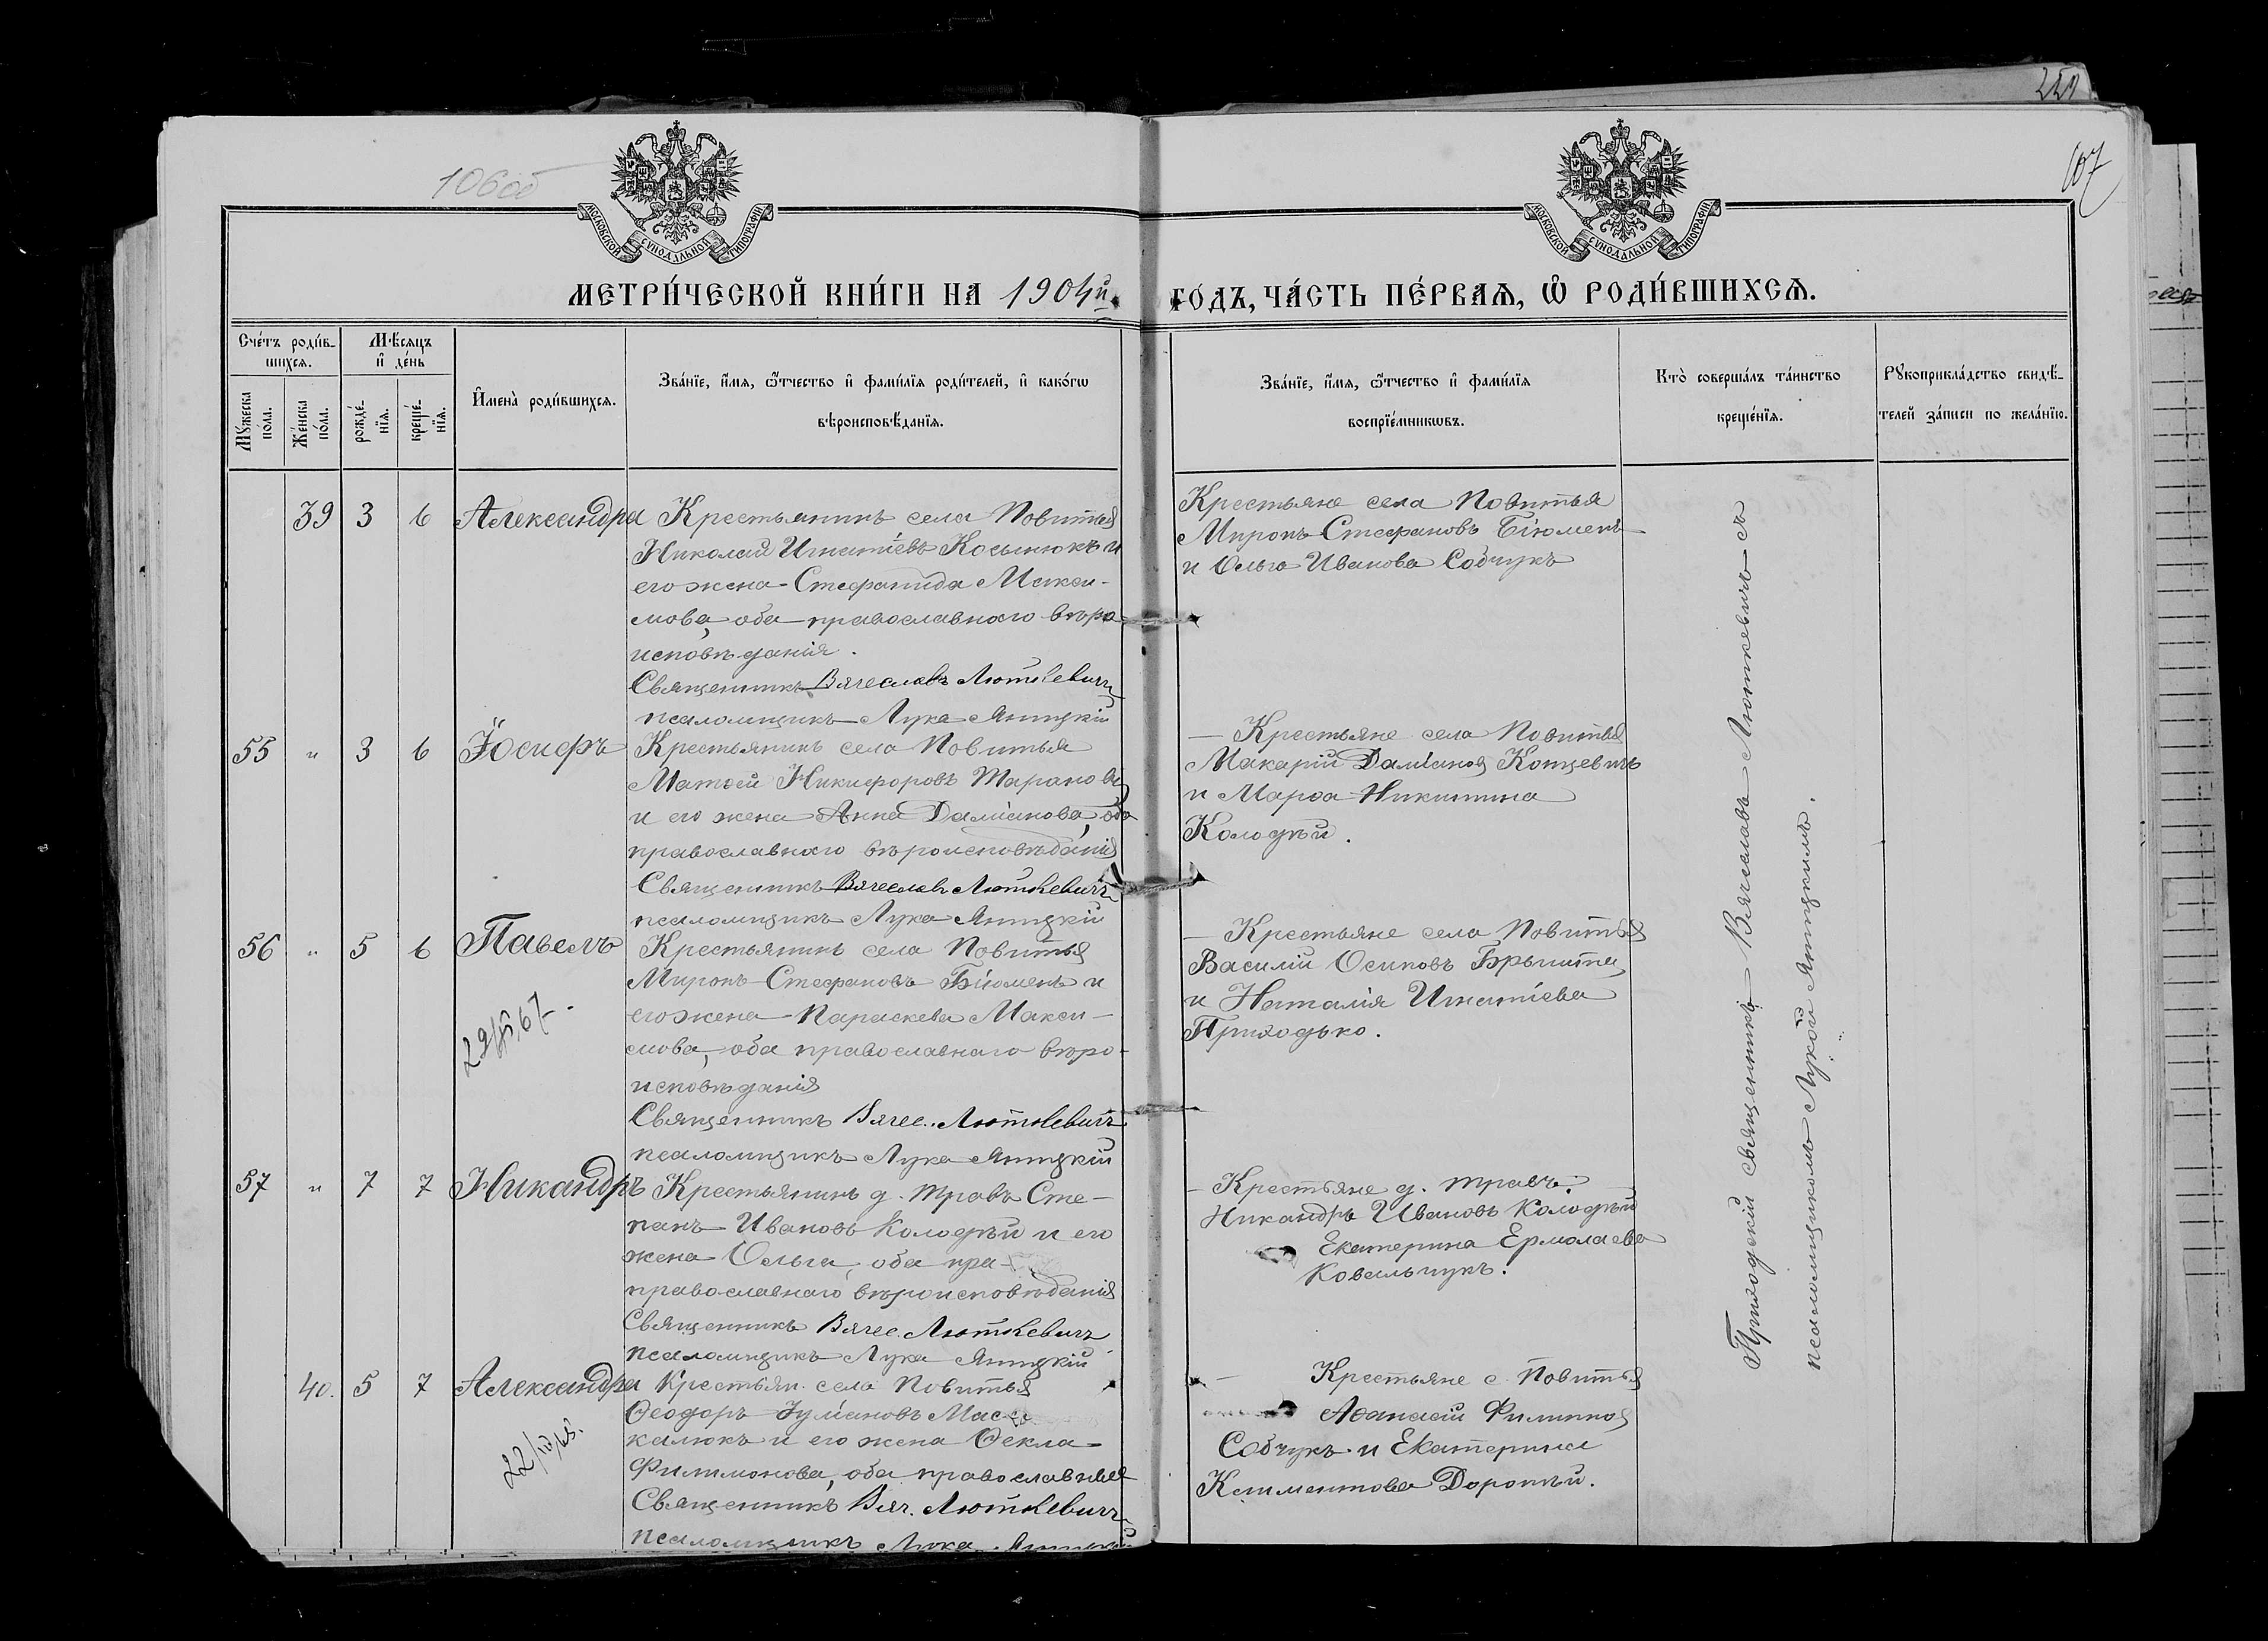 251
107
106об
МОСКОВСКОЙ СѴНОДАЛЬНОЙ ТИПОГРАФІИ
МОСКОВСКОЙ СѴНОДАЛЬНОЙ ТИПОГРАФІИ
МЕТРИ́ЧЕСКОЙ КНИ́ГИ НА 1904й
ГО́ДЪ, ЧА́СТЬ ПЕ́РВАѦ, Ѽ РОДИ́ВШИХСѦ.
Сче́тъ роди́в-
шихсѧ.
Мꙋ́жеска
по́ла.
Же́нска
по́ла.
Мѣ́сѧцъ
и҆ де́нь
рожде́-
нїѧ.
креще́-
нїѧ.
И҆мена̀ роди́вшихсѧ.
Зва́нїе, и҆́мѧ, ѻ҆́тчество и҆ фами́лїѧ роди́телей, и҆ како́гѡ
вѣроисповѣ́данїѧ.
Зва́нїе, и҆́мѧ, ѻ҆́тчество и҆ фами́лїѧ
воспрїе́мникѡвъ.
Кто̀ соверша́лъ та́инство
креще́нїѧ.
Рꙋкоприкла́дство свидѣ́-
телей за́писи по жела́нїю.
39 3 6 Александра Крестьянинъ села Повитья
Николай Игнатіевъ Косынюкъ и
его жена Стефанида Макси-
мова, оба православнаго вѣро
исповѣданія.
Священникъ Вячеславъ Люткевичъ
псаломщикъ Лука Яницкій
Крестьяне села Повитья
Миронъ Стефановъ Бїюменъ
и Ольга Иванова Собчукъ
55 " 3 6 Іосифъ Крестьянинъ села Повитья
Матѳей Никифоровъ Тарановъ
и его жена Анна Даміанова, оба
православнаго вѣроисповѣданія
Священникъ Вячеслав Люткевичъ
псаломщикъ Лука Яницкій
Крестьяне села Повитья
Макарій Даміановъ Концевичъ
и Марѳа Никитина
Колодѣй.
56 " 5 6 Павелъ Крестьянинъ села Повитья
Миронъ Стефановъ Бїюменъ и
его жена Параскева Макси-
мова, оба православнаго вѣро-
исповѣданія
Священникъ Вячес. Люткевичъ
псаломщикъ Лука Яницкій
Крестьяне села Повитья
Василій Осиповъ
и Наталія Игнатіева
Приходько.
57 " 7 7 Никандръ Крестьянинъ д. Травъ Сте-
панъ Ивановъ Колодѣй и его
жена Ольга, оба пра-
православнаго вѣроисповѣданія
Священникъ Вячес. Люткевичъ
псаломщикъ Лука Яницкій
Крестьяне д. Травъ:
Никандръ Ивановъ Колодѣй
Екатерина Ермолаева
Ковальчукъ.
40. 5 7 Александра Крестьян. села Повитья
Ѳеодоръ Іуліановъ Мас-
калюкъ и его жена Ѳекла
Филимонова, оба православные
Священникъ Вяч. Люткевичъ
псаломщикъ Лука Яницкій
Крестьяне с. Повитья
Аѳанасій Филиппов
Собчукъ и Екатерина
Климентова Доротѣй.
22/IV 65.
Приходскій священникъ Вячеславъ Люткевичъ съ
псаломщикомъ Лукой Яницкимъ.